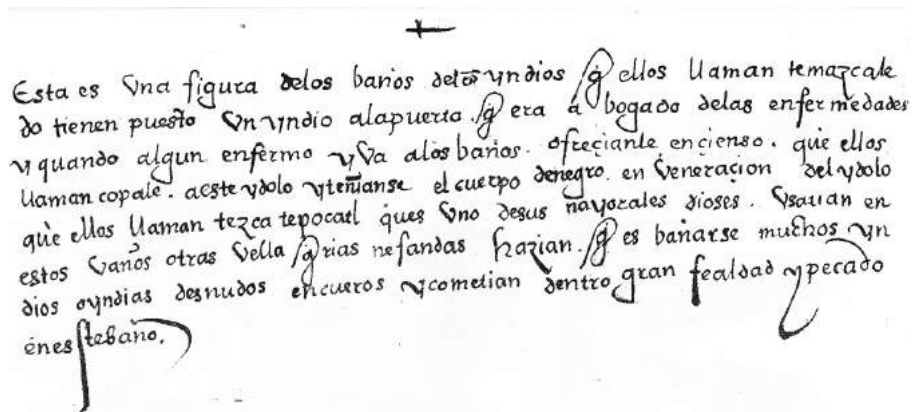 Esta es vna figura delos baños delos yndios q̃ ellos llaman temazcale
do tienen puesto vn yndio ala puerta. q̃ era abogado delas enfermedades
y quando algun enfermo yva alos baños. ofreçianle ençienso. que ellos
llaman copale. a este ydolo y teñianse el cuerpo de negro. en veneraçion del ydolo
que ellos llaman tezcatepocatl ques vno de sus mayorales dioses. vsauan en
estos vaños otras vellaq̃rias nefandas hazian. q̃ es bañarse muchos yn
dios o yndias desnudos en cueros y cometian dentro gran fealdad y pecado
en este baño.